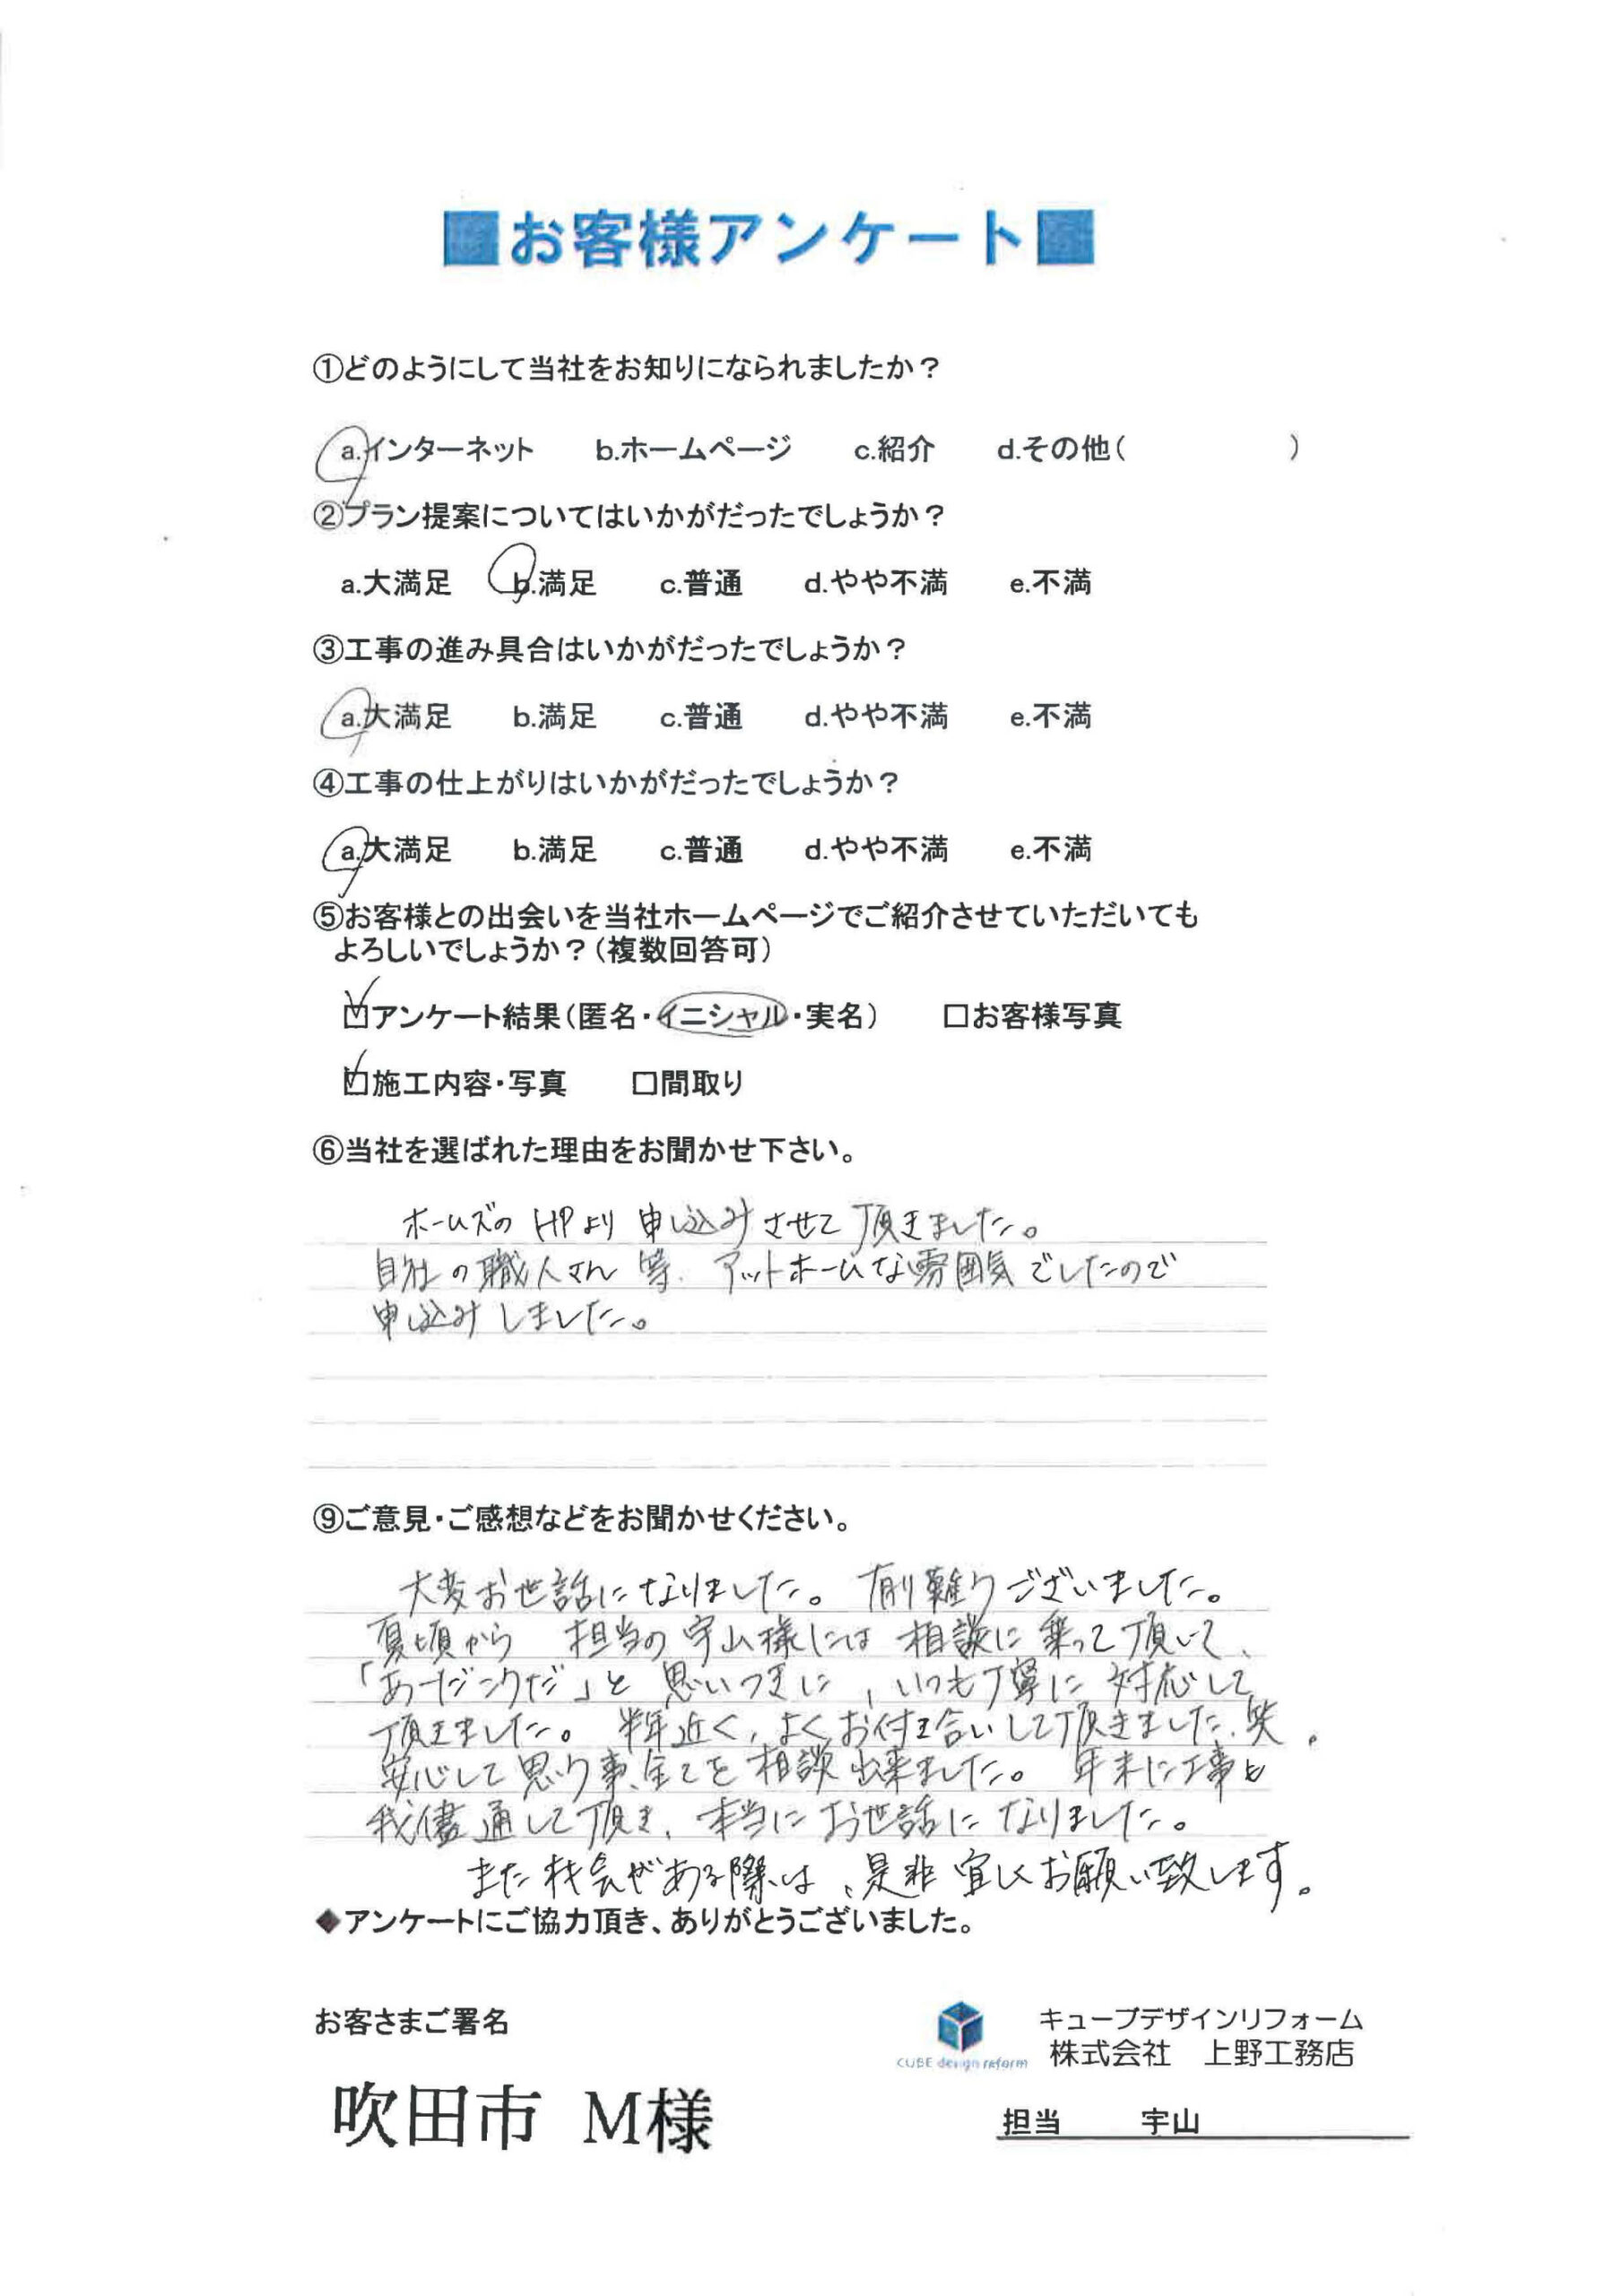 ■お客様アンケート■
①どのようにして当社をお知りになられましたか？
a.インターネット b.ホームページ c.紹介 d.その他( )
②プラン提案についてはいかがだったでしょうか？
a.大満足 b.満足 c.普通 d.やや不満 e.不満
③工事の進み具合はいかがだったでしょうか？
a.大満足 b.満足 c.普通 d.やや不満 e.不満
④工事の仕上がりはいかがだったでしょうか？
a.大満足 b.満足 c.普通 d.やや不満 e.不満
⑤お客様との出会いを当社ホームページでご紹介させていただいても
よろしいでしょうか？(複数回答可)
☑アンケート結果(匿名・イニシャル・実名) □お客様写真
☑施工内容・写真 □間取り
⑥当社を選ばれた理由をお聞かせ下さい。
ホームズの HPより 申し込みさせて頂きました。
自社の職人さん等、アットホームな雰囲気でしたので
申し込みしました。
⑨ご意見・ご感想などをお聞かせください。
大変お世話になりました。有り難うございました。
夏頃から 担当の宇山様には 相談に乗って頂いて、
と 思いつきに、いつも丁寧に対応して
頂きました。半年近く、よくお付き合いして頂きました、笑。
安心して思う事、全てを相談出来ました。年末に工事を
我儘通して頂き、本当にお世話になりました。
また機会がある際は、是非宜しくお願い致します。
◆アンケートにご協力頂き、ありがとうございました。
お客さまご署名
吹田市 M様
CUBE design reform
キューブデザインリフォーム
株式会社 上野工務店
担当 宇山